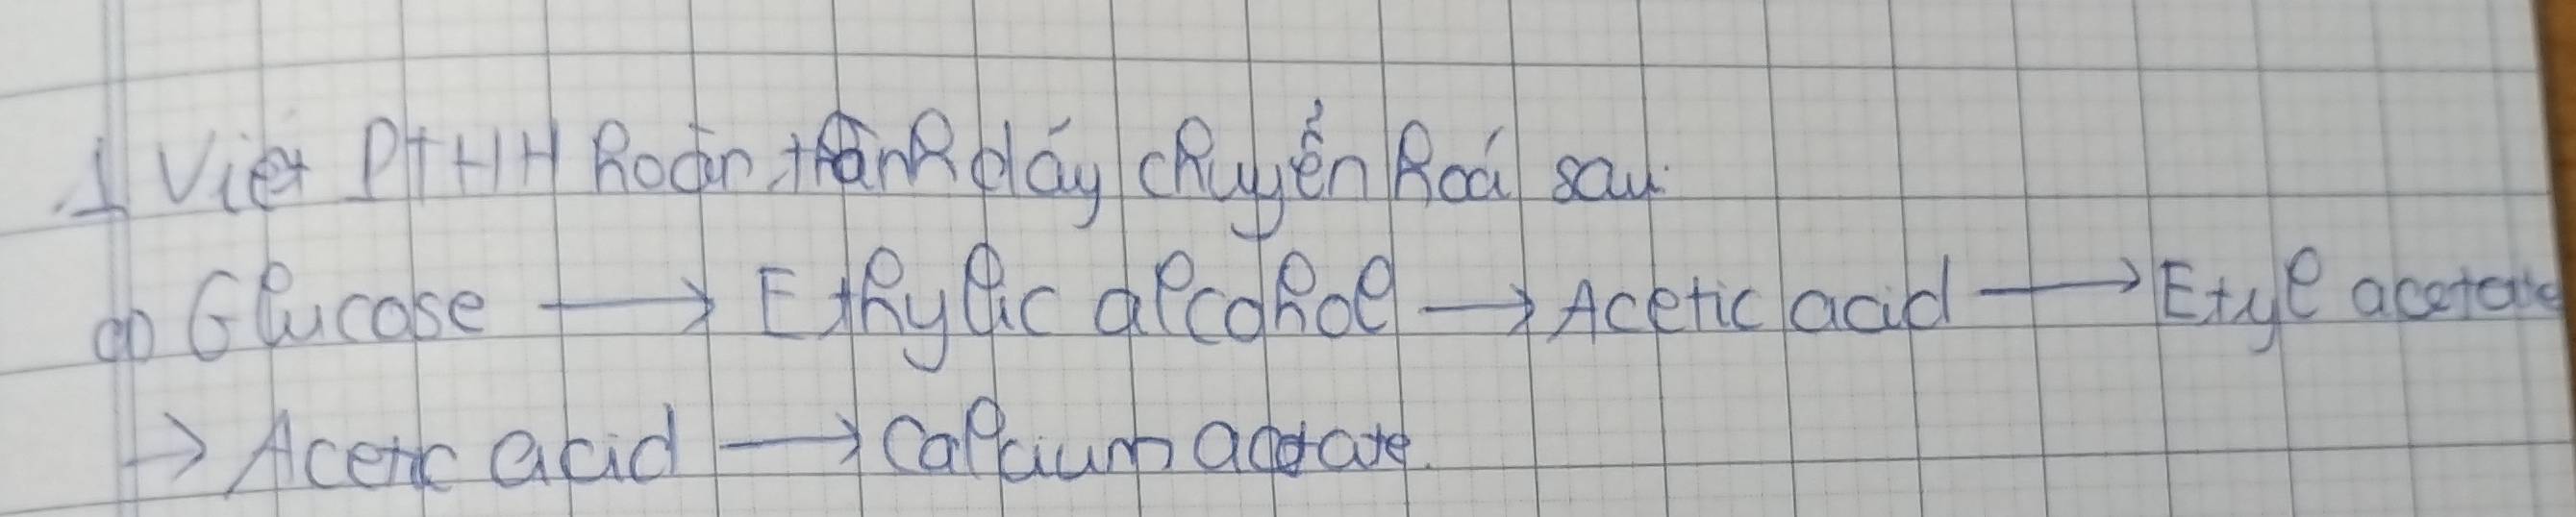 1 Viết PTHH hoàn thành dãy chuyển hoá sau:
a) Glucose → Ethylic alcohol → Acetic acid → Etyl acetate
→ Acetic acid → Calcium acetate.